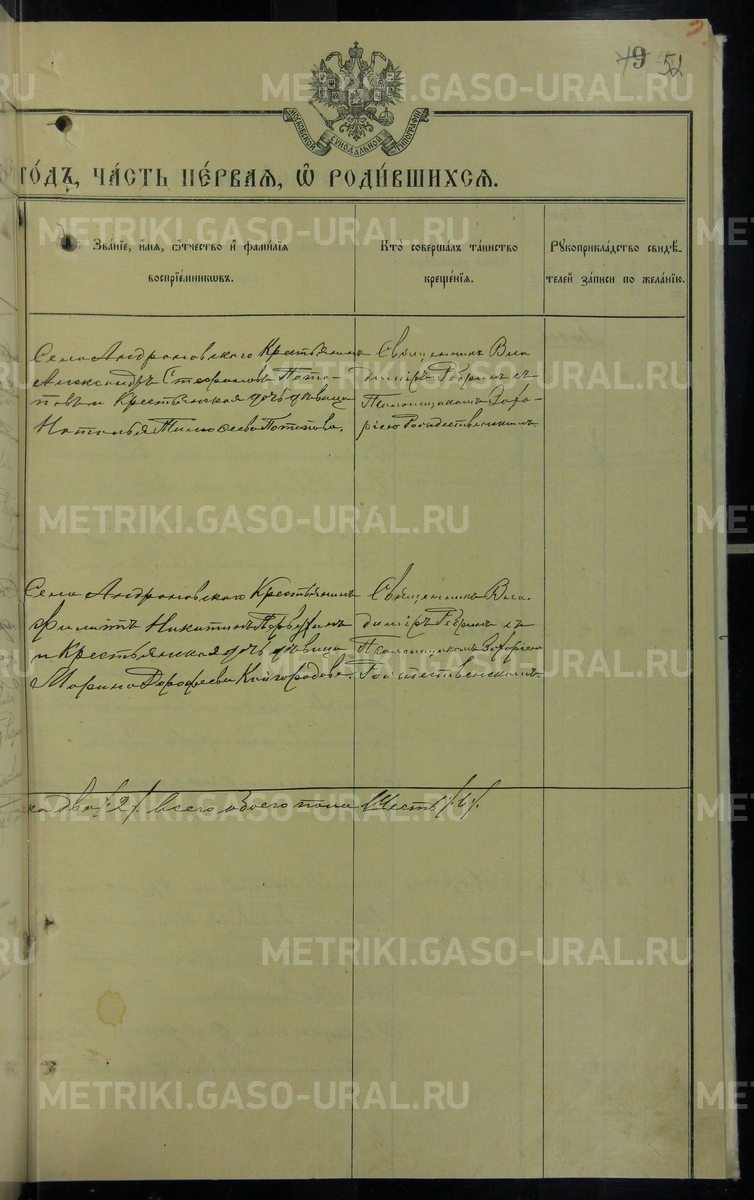 19 52
МОСКОВСКОЙ СѴНОДАЛЬНОЙ ТИПОГРАФІИ
ГОДЪ, ЧАСТЬ ПЕРВАЯ, Ѡ РОДИВШИХСЯ.
Званіе, имя, ѻтчество и фамилія воспріемниковъ.
Кто совершалъ таинство крещенія.
Рукоприкладство свидѣтелей записи по желанію.
Села Андроновскаго Крестьянинъ
Александръ Стефановъ Пота-
повъ и Крестьянская дочь дѣвица
Наталья Потапова.
Священникъ Вла
диміръ съ
Псаломщикомъ Заха-
ріею Рождественскимъ
Села Андроновскаго Крестьянинъ
Филиппъ Никитинъ
и Крестьянская дочь дѣвица
Марина Дорофеева Кайгородова.
Священникъ Вла-
диміръ съ
Псаломщикомъ Захаріею
Рождественскимъ.
ка два /2/. всего обоего пола Шесть /6/.
METRIKI.GASO-URAL.RU